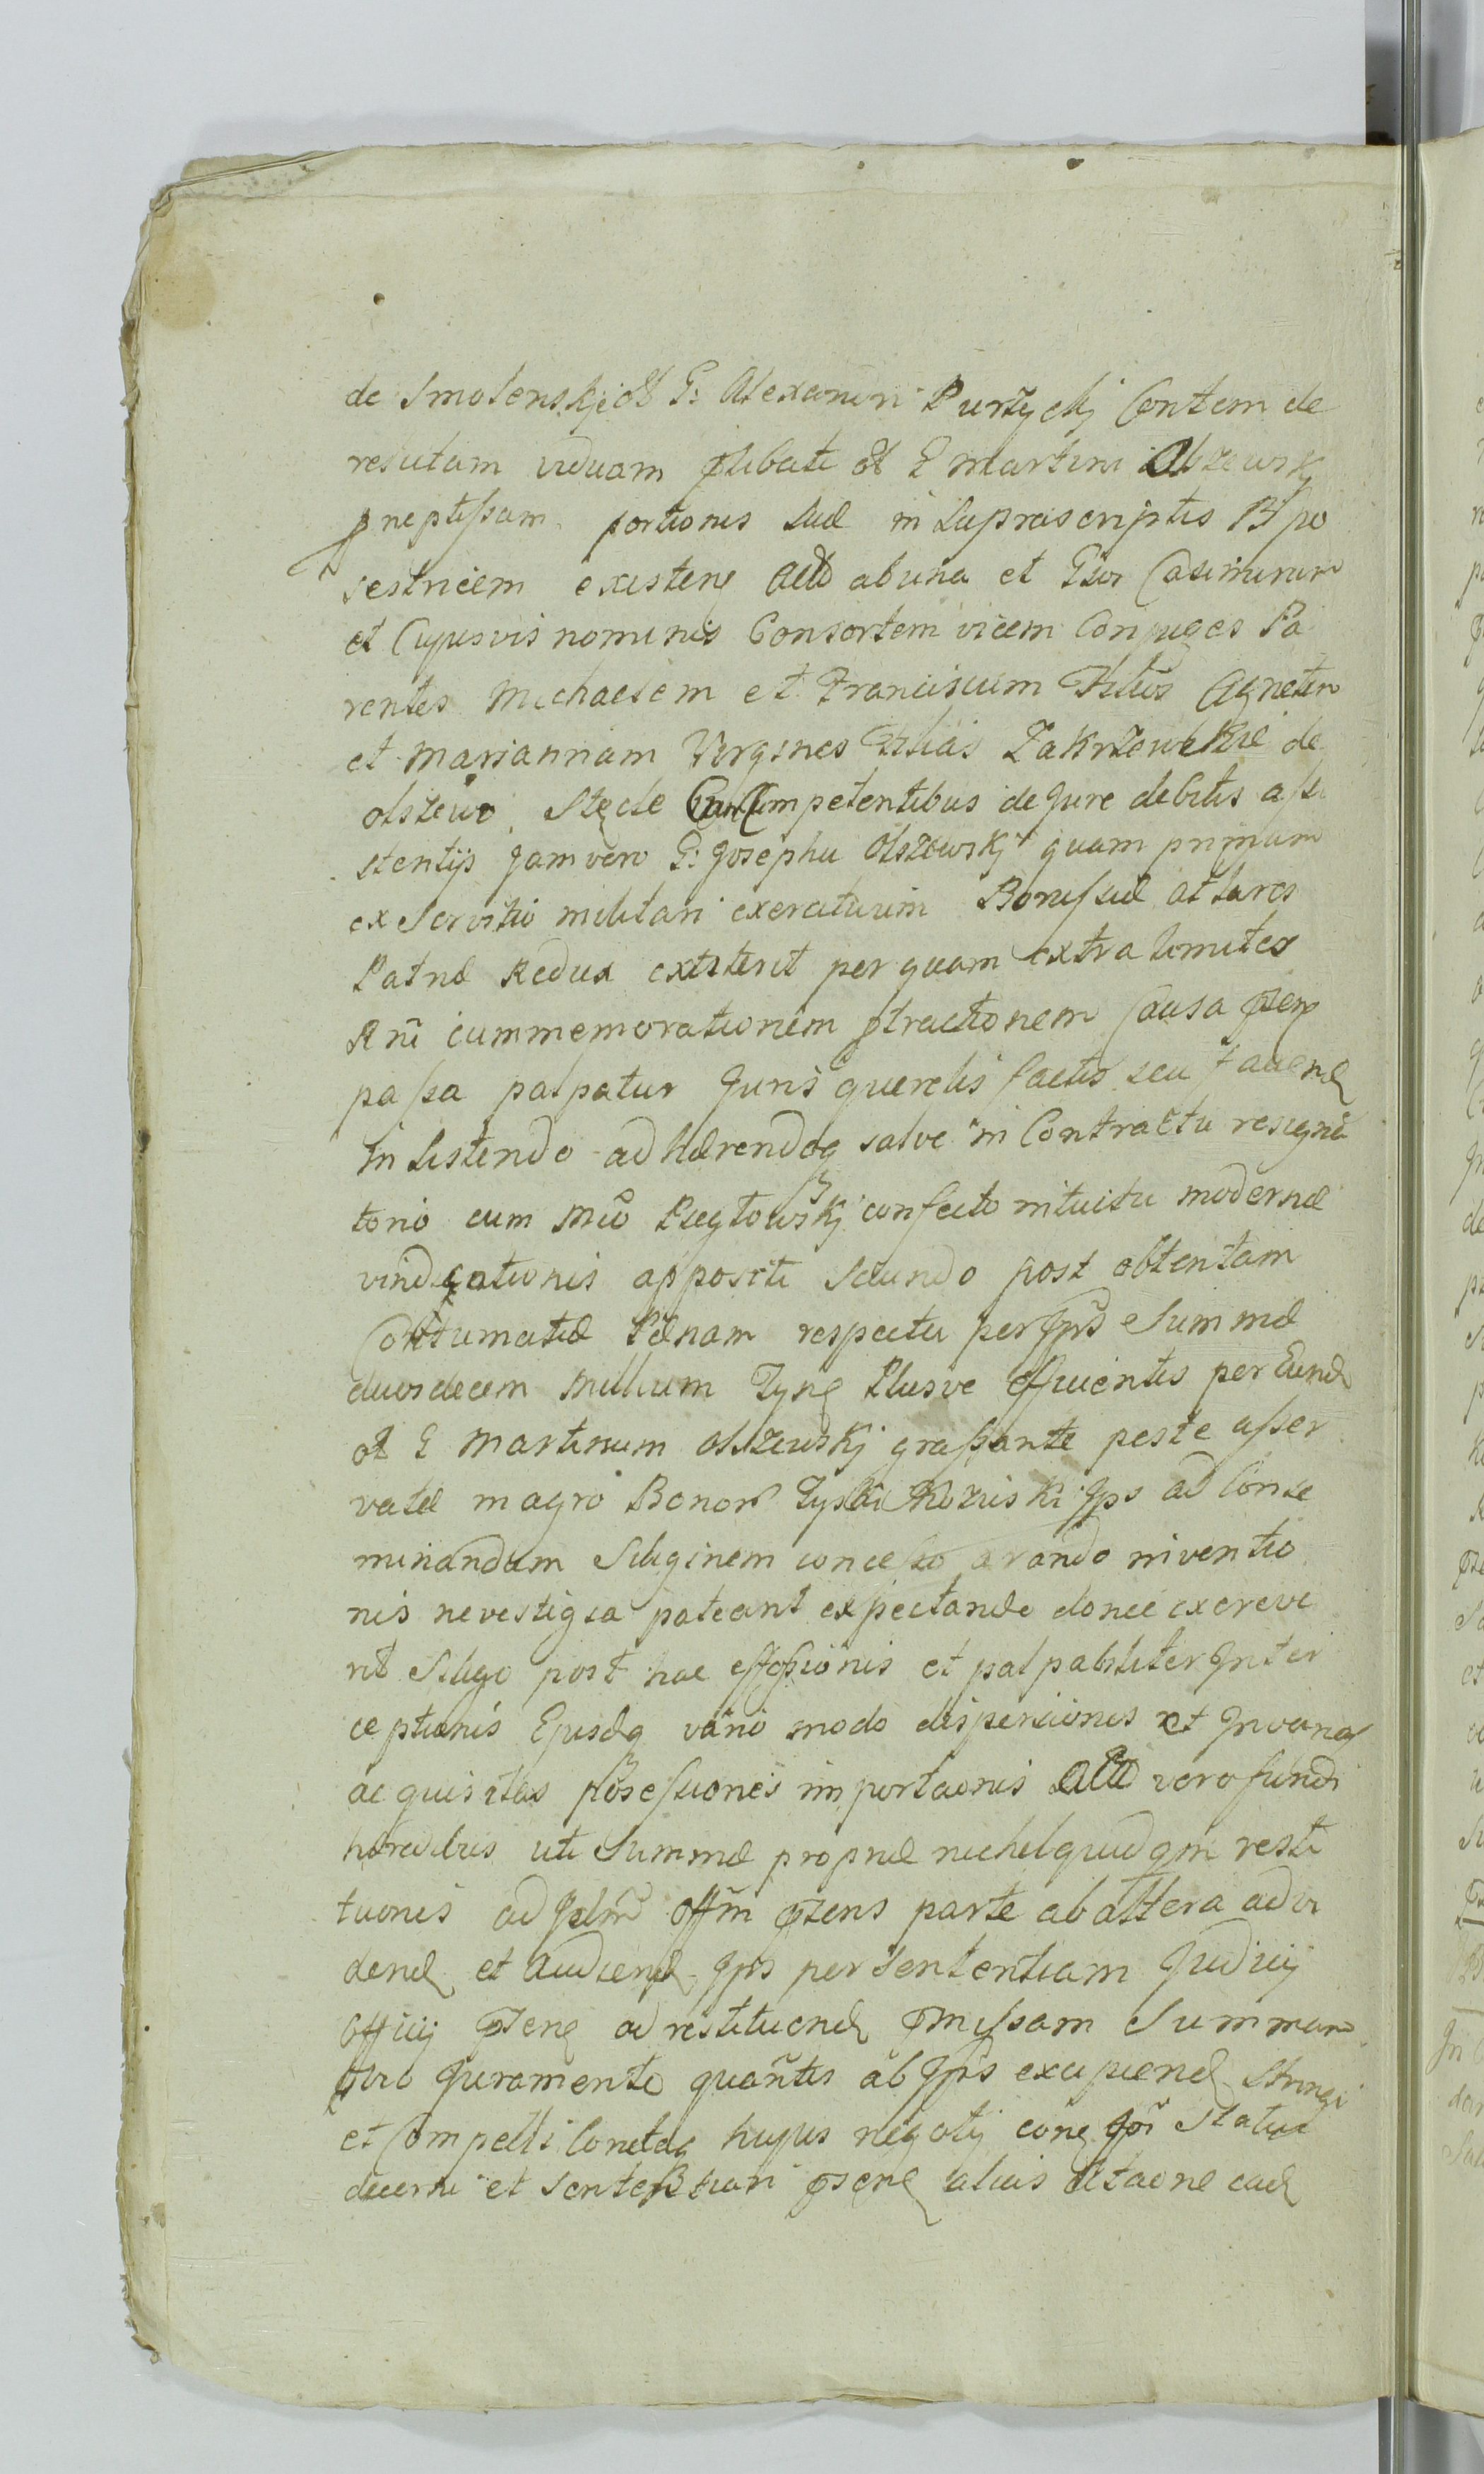 de Smolenskie ol G: Alexandri Purzyckij Contem de
relictam viduam plibati ol G Martini Olszewskj
pneptissam portionis suæ in suprascriptis B pos
sestricem existen actt ab una et Gsos Casimirum
et Cujusvis nominis Consortem vicem Conjuges Pa
rentes Michaelem et Franciscum Filios Agnetem
et Mariannam Virgines Filias Zakrzewskie de
Olszewo Stecle Cum Competentibus de Jure debitis assi
stentijs Jam vero G: Josephu Olszewskj quam primum
ex Servitio militari exercituum Bonis suæ at lares
Patriæ Redux extiterit per quam extra limites
Rni cummemorationem ptractionem Causa psens
passa palpatur Juris querelis factis seu faciend
Insistendo adhærendoq salve in Contractu resigna
torio cum Mco Pregtowskj confecto intuitu modernæ
vindicationis appositi secundo post obtentam
Contumatiæ Pænam respectu per Ipsos Summæ
duosdecem Millium Tyne Plusve efficientis per Eund
ol G Martinum Olszewskj grassante peste asser
vatæ in agro Bonor Tyski Koziuski Ips ad Conse
minandam Siliginem concesso arando inventio
nis ne vestigia pateant expectando donec excreve
rit Siligo post hac effossionis et palpabiliter Inter
ceptionis Ejusdq vario modo dispersionis et In varias
acquisitas possessiones importaonis actt vero fundi
hæredibus uti Summæ propriæ nichil quidqm resti
tuonis ad Judm Offm psens parte ab altera ad vi
dend et Audiend Ips per sententiam Judicij
Officij psens ad restituend pmissam Summam
Juramento quantis ab Ipsis excipiend Stringi
et Compelli Contaq hujus negotij cone Jori Statui
decerni et sententiari psens alias Citaone ead